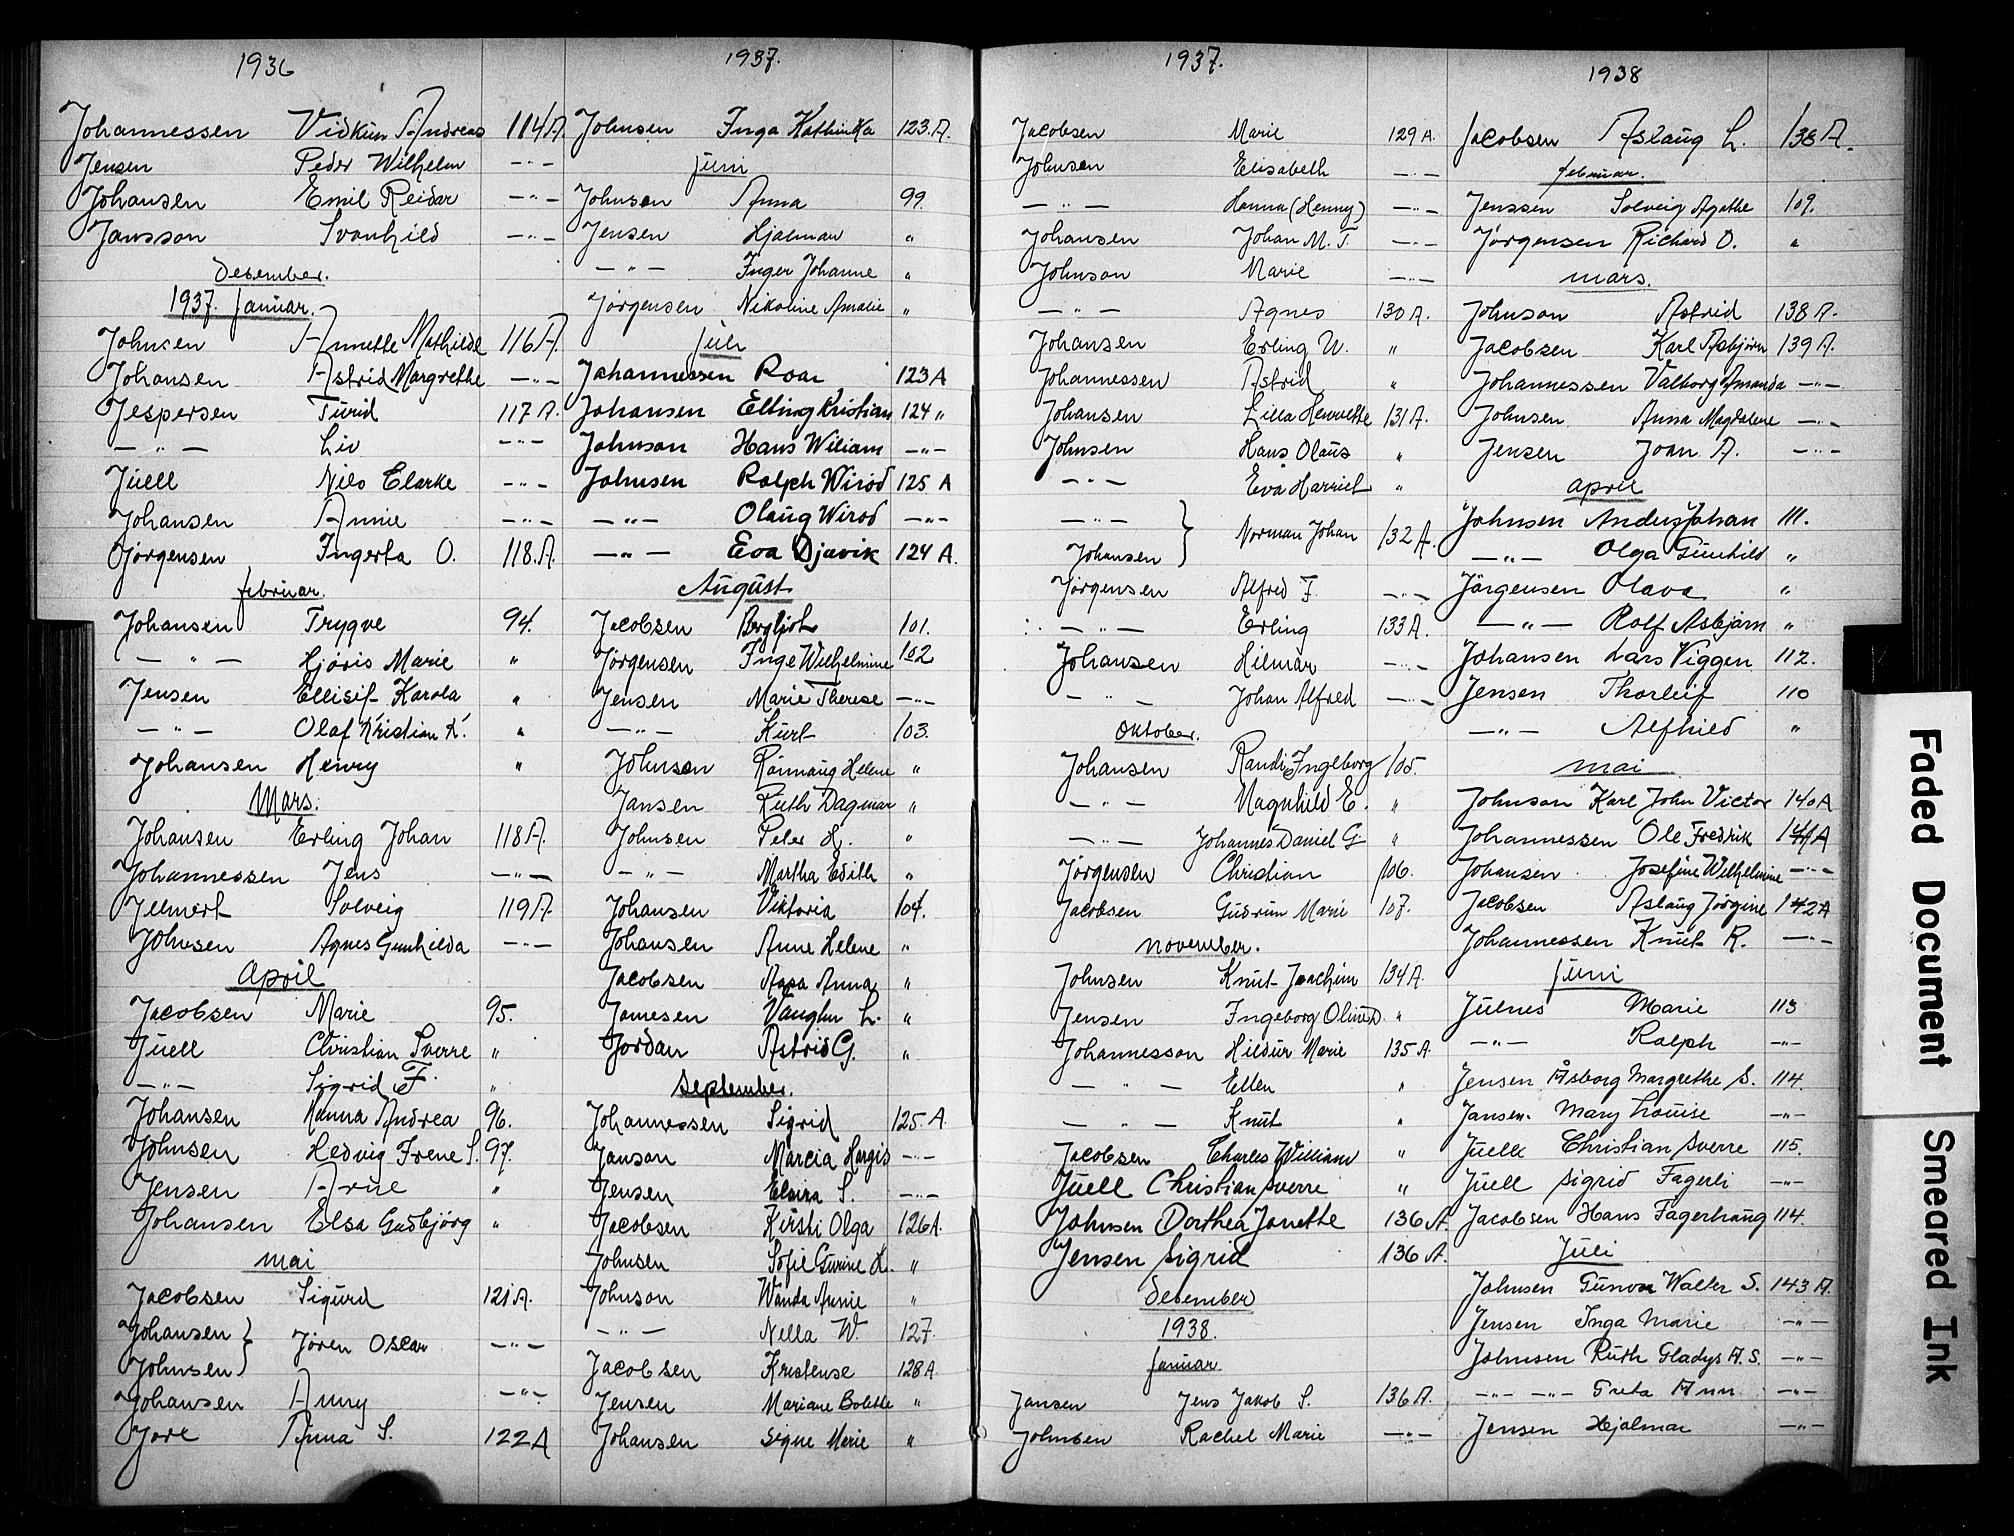 1936
Johannessen Vidkun Andreas 114 A.
Jensen Peder Wilhelm —"—
Johansen Emil Reidar —"—
Jansson Svanhild —"—
Desember.
1937. Januar.
Johnsen Annette Mathilde 116 A.
Johansen Astrid Margrethe —"—
Jespersen Turid 117 A.
— " — Liv —"—
Juell Nils Clarke —"—
Johansen Annie —"—
Jørgensen Ingerta O. 118. A.
februar.
Johansen Trygve 94.
— " — Hjøris Marie "
Jensen Ellisif Karola "
— " — Olaf Kristian K. "
Johansen Henry "
Mars.
Johansen Erling Johan 118 A.
Johannessen Jens —"—
Jellmert Solveig 119 A.
Johnsen Agnes Gunhilda —"—
April
Jacobsen Marie 95.
Juell Christian Sverre "
— " — Sigrid F. "
Johansen Hanna Andrea 96.
Johnsen Hedvig Irene S. 97.
Jensen Arne "
Johansen Elsa Gudbjörg "
mai
Jacobsen Sigurd 121 A.
Johansen }
Jören Oscar —"—
Johnsen }
Johansen Anny —"—
Jore Anna S. 122 A
1937.
Johnsen Inga Kathinka 123. A.
juni
Johnsen Anna 99.
Jensen Hjalmar "
— " — Inger Johanne "
Jörgensen Nikoline Amalie "
juli
Johannessen Roar 123 A
Johansen Elling Kristian 124 "
Johnson Hans Wiliam —"—
Johnsen Ralph Wirod 125 A
— " — Olaug Wirod —"—
— " — Eva Djuvik 124 A.
August
Jacobsen Bergljot 101.
Jørgensen Inge Wilhelmine 102
Jensen Marie Therese —"—
— " — Kurt 103.
Johnsen Rannaug Helene "
Jansen Ruth Dagmar "
Johnsen Peter H. "
— " — Martha Edith "
Johansen Viktoria 104.
Johansen Anne Helene "
Jacobsen Aasa Anna "
Jamesen Vaughn L. "
Jordan Astrid G. "
September.
Johannessen Sigrid 125. A.
Janson Marcia Hargis —"—
Jensen Elvira S. —"—
Jacobsen Kirsti Olga 126 A.
Johnsen Sofie Gurine H. "
Johnson Wanda Annie "
— " — Nella W. 127.
Jacobsen Kristense 128 A
Jensen Mariane Bolette "
Johansen Signe Marie "
1937.
Jacobsen Marie 129 A.
Johnsen Elisabeth —"—
— " — Hanna (Henny) —"—
Johansen Johan M. T. —"—
Johnson Marie —"—
— " — Agnes 130 A.
Johansen Erling W. "
Johannessen Astrid "
Johansen Lilla Hennette 131 A.
Johnsen Hans Olaus "
— " — Eva Harriet "
— " — }
Norman Johan 132 A.
Johansen }
Jørgensen Alfred F. —"—
— " — Erling 133 A.
Johansen Hilmar —"—
— " — Johan Alfred —"—
Oktober.
Johansen Randi Ingeborg 105.
— " — Magnhild E. "
— " — Johannes Daniel G. "
Jørgensen Christian 106.
Jacobsen Gudrun Marie 107.
november.
Johnsen Knut Joachim 134 A.
Jensen Ingeborg Oline D. "
Johannesson Hildur Marie 135 A.
— " — Ellen "
— " — Knut "
Jacobsen Charles William "
Juell Christian Sverre "
Johnsen Dorthea Janette 136 A.
Jensen Sigrid 136 A.
Desember
1938.
Januar.
Jansen Jens Jakob S. 136 A.
Johnsen Rachel Marie —"—
1938
Jacobsen Aslaug L. 138 A.
februar.
Jenssen Solveig Agathe 109.
Jørgensen Richard O. "
mars.
Johnson Astrid 138 A.
Jacobsen Karl Asbjørn 139 A.
Johannessen Valborg Amanda —"—
Johnsen Anna Magdalene —"—
Jensen Joan A. —"—
april
Johnsen Anders Johan 111.
— " — Olga Gunhild "
Jörgensen Olava "
— " — Rolf Asbjørn "
Johansen Lars Viggen 112.
Jensen Thorleif 110
— " — Alfhild "
mai
Johnson Karl John Victor 140 A
Johannessen Ole Fredrik 141 A
Johansen Josefine Wilhelmine —"—
Jacobsen Aslaug Jörgine 142 A
Johannessen Knut R. —"—
juni
Julnes Marie 113
— " — Ralph —"—
Jensen Åsborg Margrethe S. 114.
Jansen. Mary Louise —"—
Juell Christian Sverre 115.
Juell Sigrid Fagerli —"—
Jacobsen Hans Fagerhaug 114.
Juli
Johnsen Gunvor Walter S. 143 A.
Jensen Inga Marie —"—
Johnsen Ruth Gladys A. S. —"—
— " — — " — Greta Ann —"—
Jensen Hjalmar —"—
Faded Document
Smeared Ink